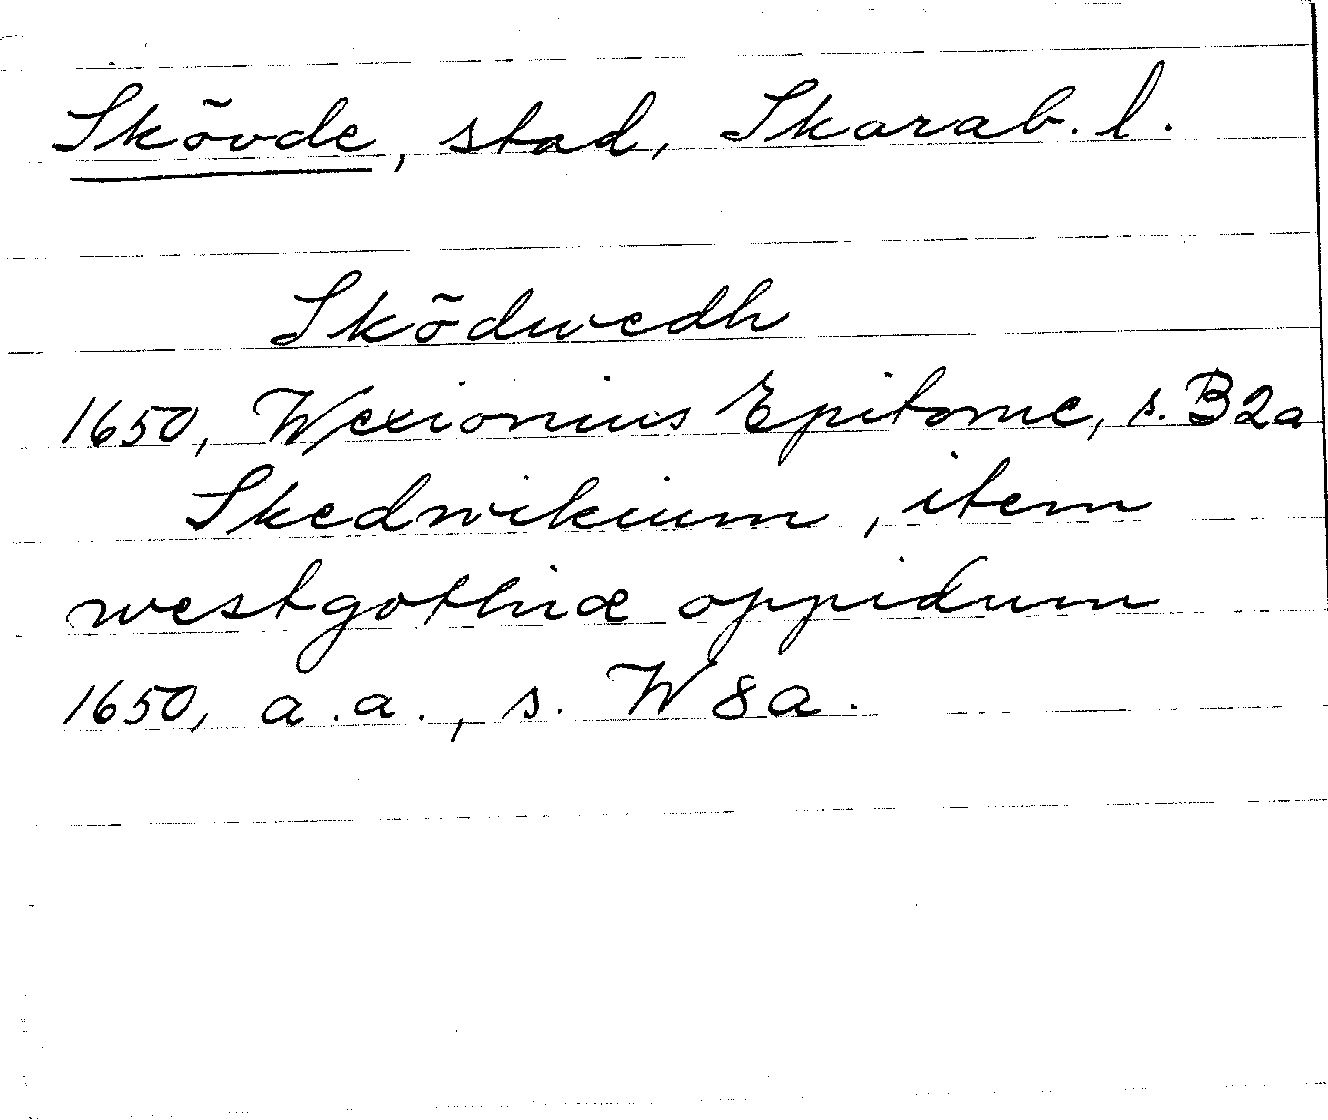 Skövde, stad, Skarab. l.
Sködwedh
1650, Wexionius Epitome, s. B2a
Skedwikium, item
westgothiæ oppidum
1650, a.a., s. W8a.